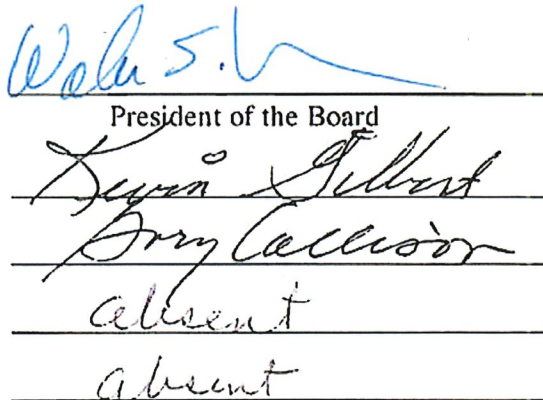 President of the Board
Kevin Gilbert
Gory Collison
absent
absent